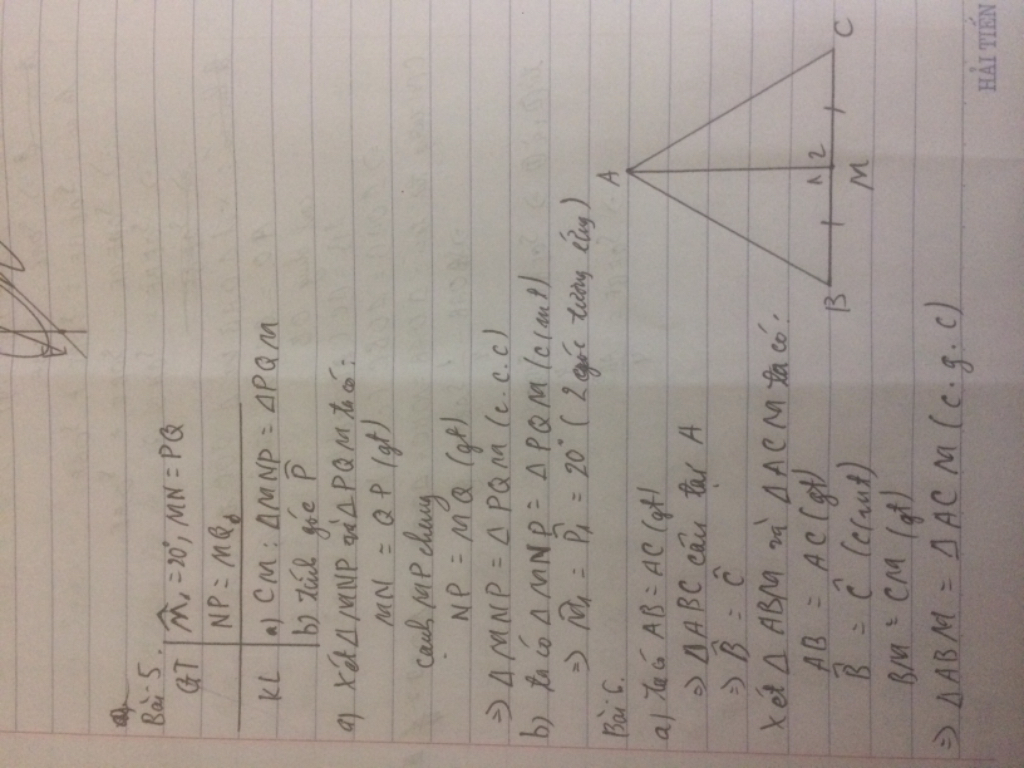 Bài 5.
GT M̂₁ = 20°, MN = PQ
NP = MQ
KL a) CM: ΔMNP = ΔPQM
b) tính góc P̂
a) Xét ΔMNP và ΔPQM, ta có:
MN = QP (gt)
cạnh MP chung
NP = MQ (gt)
=> ΔMNP = ΔPQM (c.c.c)
b) ta có ΔMNP = ΔPQM (c/cmt)
=> M̂₁ = P̂₁ = 20° (2 góc tương ứng)
Bài 6.
a) ta có AB = AC (gt)
=> ΔABC cân tại A
=> B̂ = Ĉ
Xét ΔABM và ΔACM ta có:
AB = AC (gt)
B̂ = Ĉ (c/cmt)
BM = CM (gt)
=> ΔABM = ΔACM (c.g.c)
A
B
1
2
M
C
HẢI TIẾN